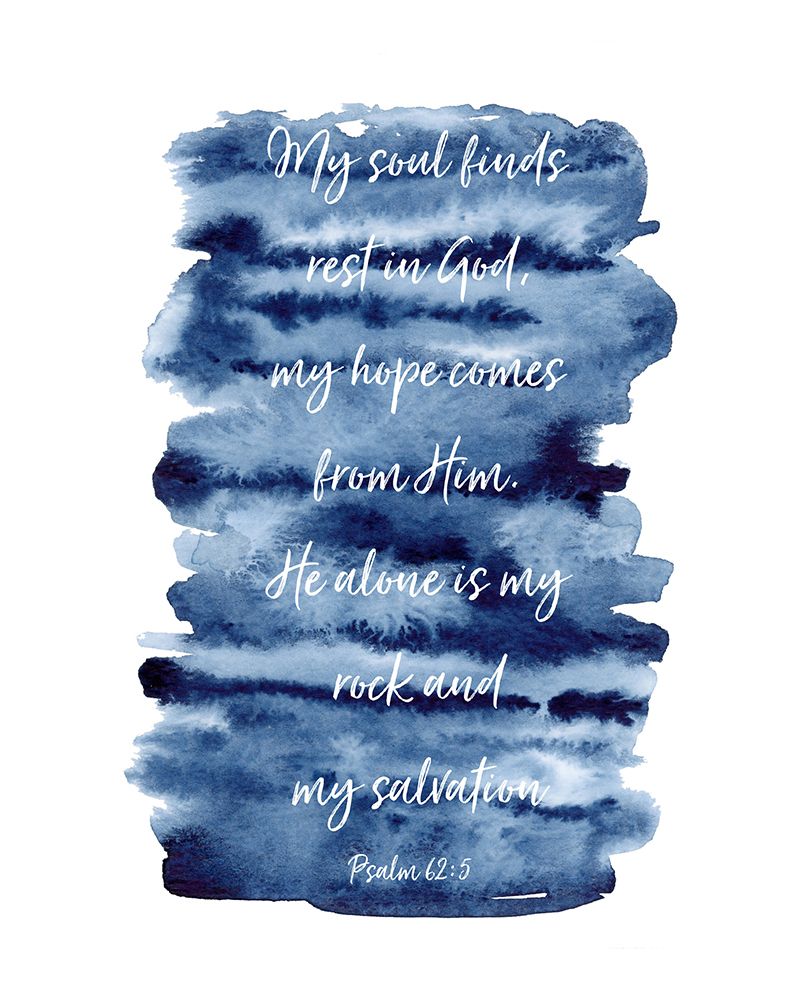 My soul finds
rest in God,
my hope comes
from Him.
He alone is my
rock and
my salvation
Psalm 62:5